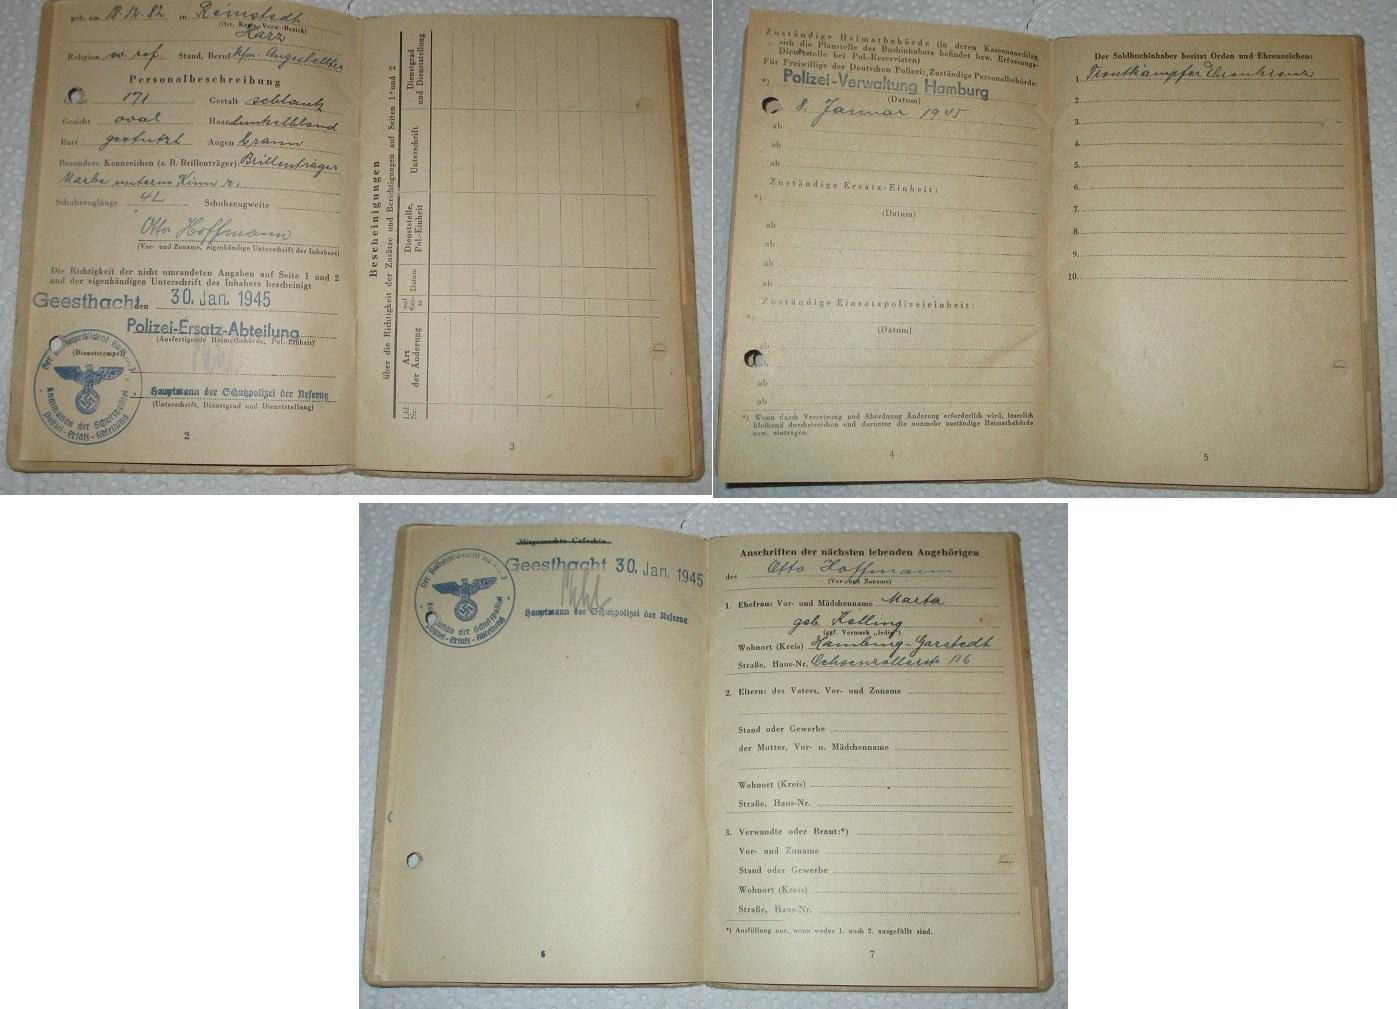 geb. am 18.12.82 in Reinstedt
(Ort, Kreis, Verw.-Bezirk)
Harz
Religion ev. ref. Stand, Beruf kfm. Angestellter
Personalbeschreibung
171 Gestalt schlank
Gesicht oval Haar dunkelblond
Bart gestutzt Augen braun
Besondere Kennzeichen (z. B. Brillenträger): Brillenträger
Narbe unterm Kinn r.
Schuhzeuglänge 42 Schuhzeugweite
Otto Hoffmann
(Vor- und Zuname, eigenhändige Unterschrift des Inhabers)
Die Richtigkeit der nicht umrandeten Angaben auf Seite 1 und 2
und der eigenhändigen Unterschrift des Inhabers bescheinigt
Geesthacht den 30. Jan. 1945
Polizei-Ersatz-Abteilung
(Ausfertigende Heimatbehörde, Pol.-Einheit)
(Dienststempel)
Hauptmann der Schutzpolizei der Reserve
(Unterschrift, Dienstgrad und Dienststellung)
Kommando der Schutzpolizei
Polizei-Ersatz-Abteilung
2
Bescheinigungen
über die Richtigkeit der Zusätze und Berichtigungen auf Seiten 1 und 2
Lfd. Nr.
Art der Änderung
auf Seite
Datum
Dienststelle, Pol.-Einheit
Unterschrift
Dienstgrad und Dienststellung
3
Zuständige Heimatbehörde (in deren Kassenanschlag
sich die Planstelle des Buchinhabers befindet bzw. Erfassungs-
Dienststelle bei Pol.-Reservisten)
Für Freiwillige der Deutschen Polizei: Zuständige Personalbehörde:
*) Polizei-Verwaltung Hamburg
(Datum)
8. Januar 1945
ab
ab
ab
Zuständige Ersatz-Einheit:
*)
(Datum)
ab
ab
ab
ab
Zuständige Einsatzpolizeieinheit:
*)
(Datum)
ab
ab
ab
ab
*) Wenn durch Versetzung und Abordnung Änderung erforderlich wird, leserlich
bleibend durchstreichen und darunter die nunmehr zuständige Heimatbehörde
usw. eintragen.
4
Der Soldbuchinhaber besitzt Orden und Ehrenzeichen:
1. Frontkämpfer Ehrenkreuz
2.
3.
4.
5.
6.
7.
8.
9.
10.
5
Mitgemachte Gefechte
Geesthacht 30. Jan. 1945
Hauptmann der Schutzpolizei der Reserve
Kommando der Schutzpolizei
Polizei-Ersatz-Abteilung
6
Anschriften der nächsten lebenden Angehörigen
des Otto Hoffmann
(Vor- und Zuname)
1. Ehefrau: Vor- und Mädchenname Marta
geb. Kelling
(ggf. Vermerk „ledig")
Wohnort (Kreis) Hamburg-Garstedt
Straße, Haus-Nr. Ochsenzollerstr. 136
2. Eltern: des Vaters, Vor- und Zuname
Stand oder Gewerbe
der Mutter, Vor- u. Mädchenname
Wohnort (Kreis)
Straße, Haus-Nr.
3. Verwandte oder Braut:*)
Vor- und Zuname
Stand oder Gewerbe
Wohnort (Kreis)
Straße, Haus-Nr.
*) Ausfüllung nur, wenn weder 1. noch 2. ausgefüllt sind.
7